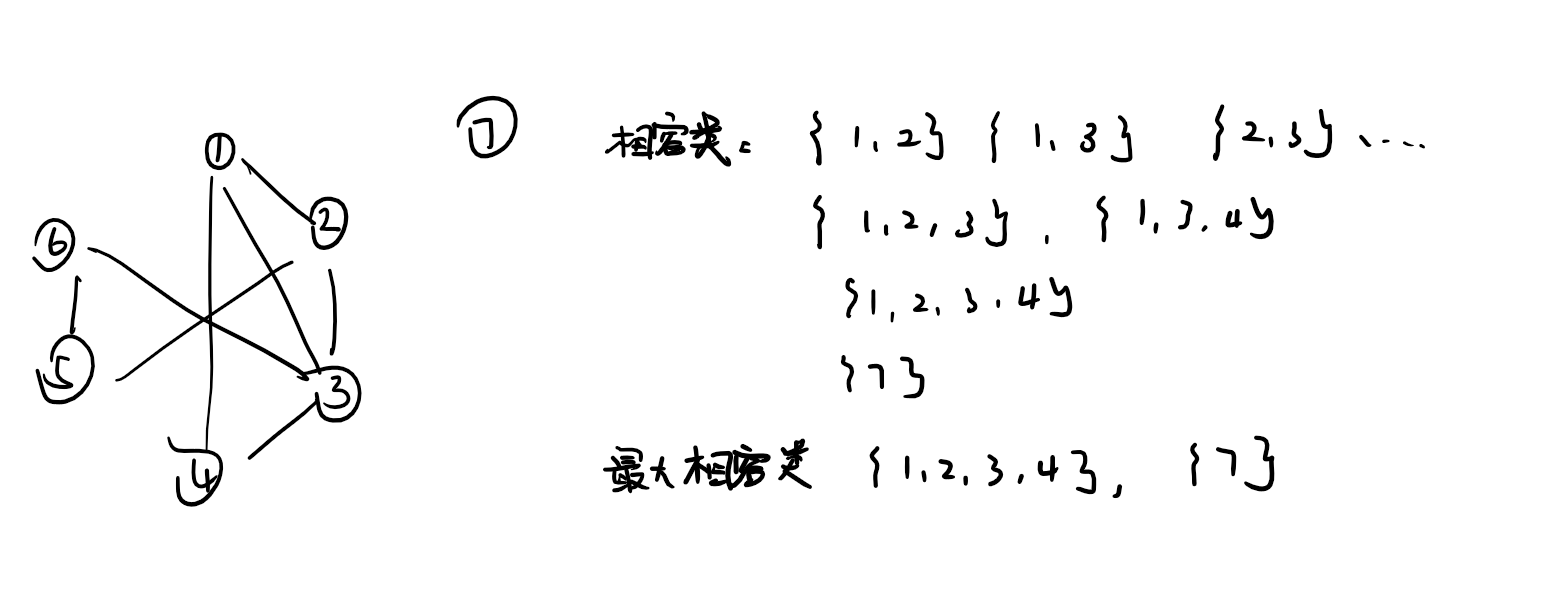 1
2
3
4
5
6
7
相容类: {1,2} {1,3} {2,3} ....
{1,2,3}, {1,3,4}
{1,2,3,4}
{7}
最大相容类 {1,2,3,4}, {7}